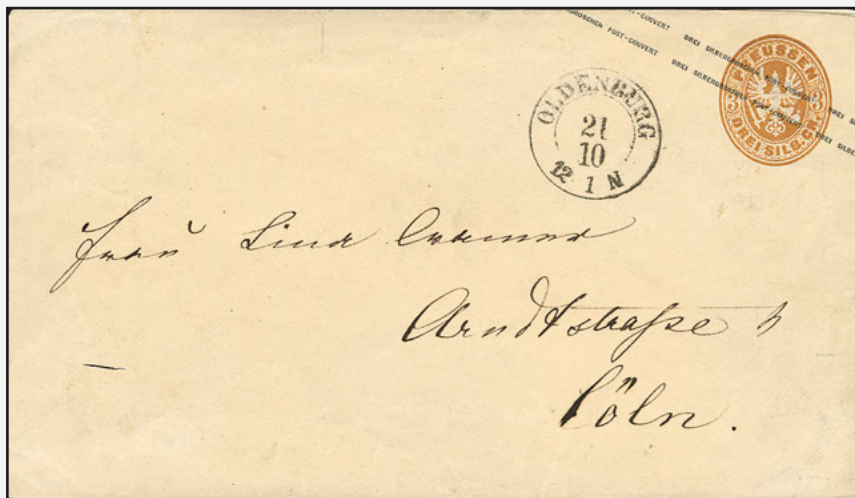 GROSCHEN POST-COUVERT DREI SILBERGROSCHEN POST-COUVERT DREI
POST-COUVERT DREI SILBERGROSCHEN POST-COUVERT DREI SILBE
PREUSSEN
3 3
DREI SILB. GR.
OLDENBURG
21
10
12 1 N
Frau Lina Cramer
Arndtstraße
Cöln.